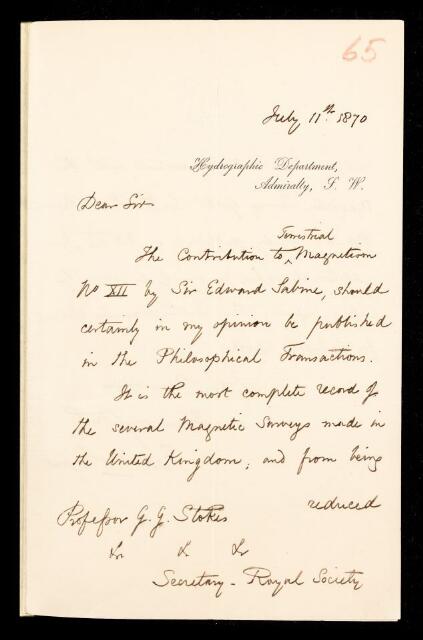 65
July 11th 1870
Hydrographic Department,
Admiralty, S. W.
Dear Sir
Terrestrial
The Contribution to ‸ Magnetism
No XII by Sir Edward Sabine, should
certainly in my opinion be published
in the Philosophical Transactions.
It is the most complete record of
the several Magnetic Surveys made in
the United Kingdom; and from being
reduced
Professor G. G. Stokes
&c &c &c
Secretary - Royal Society